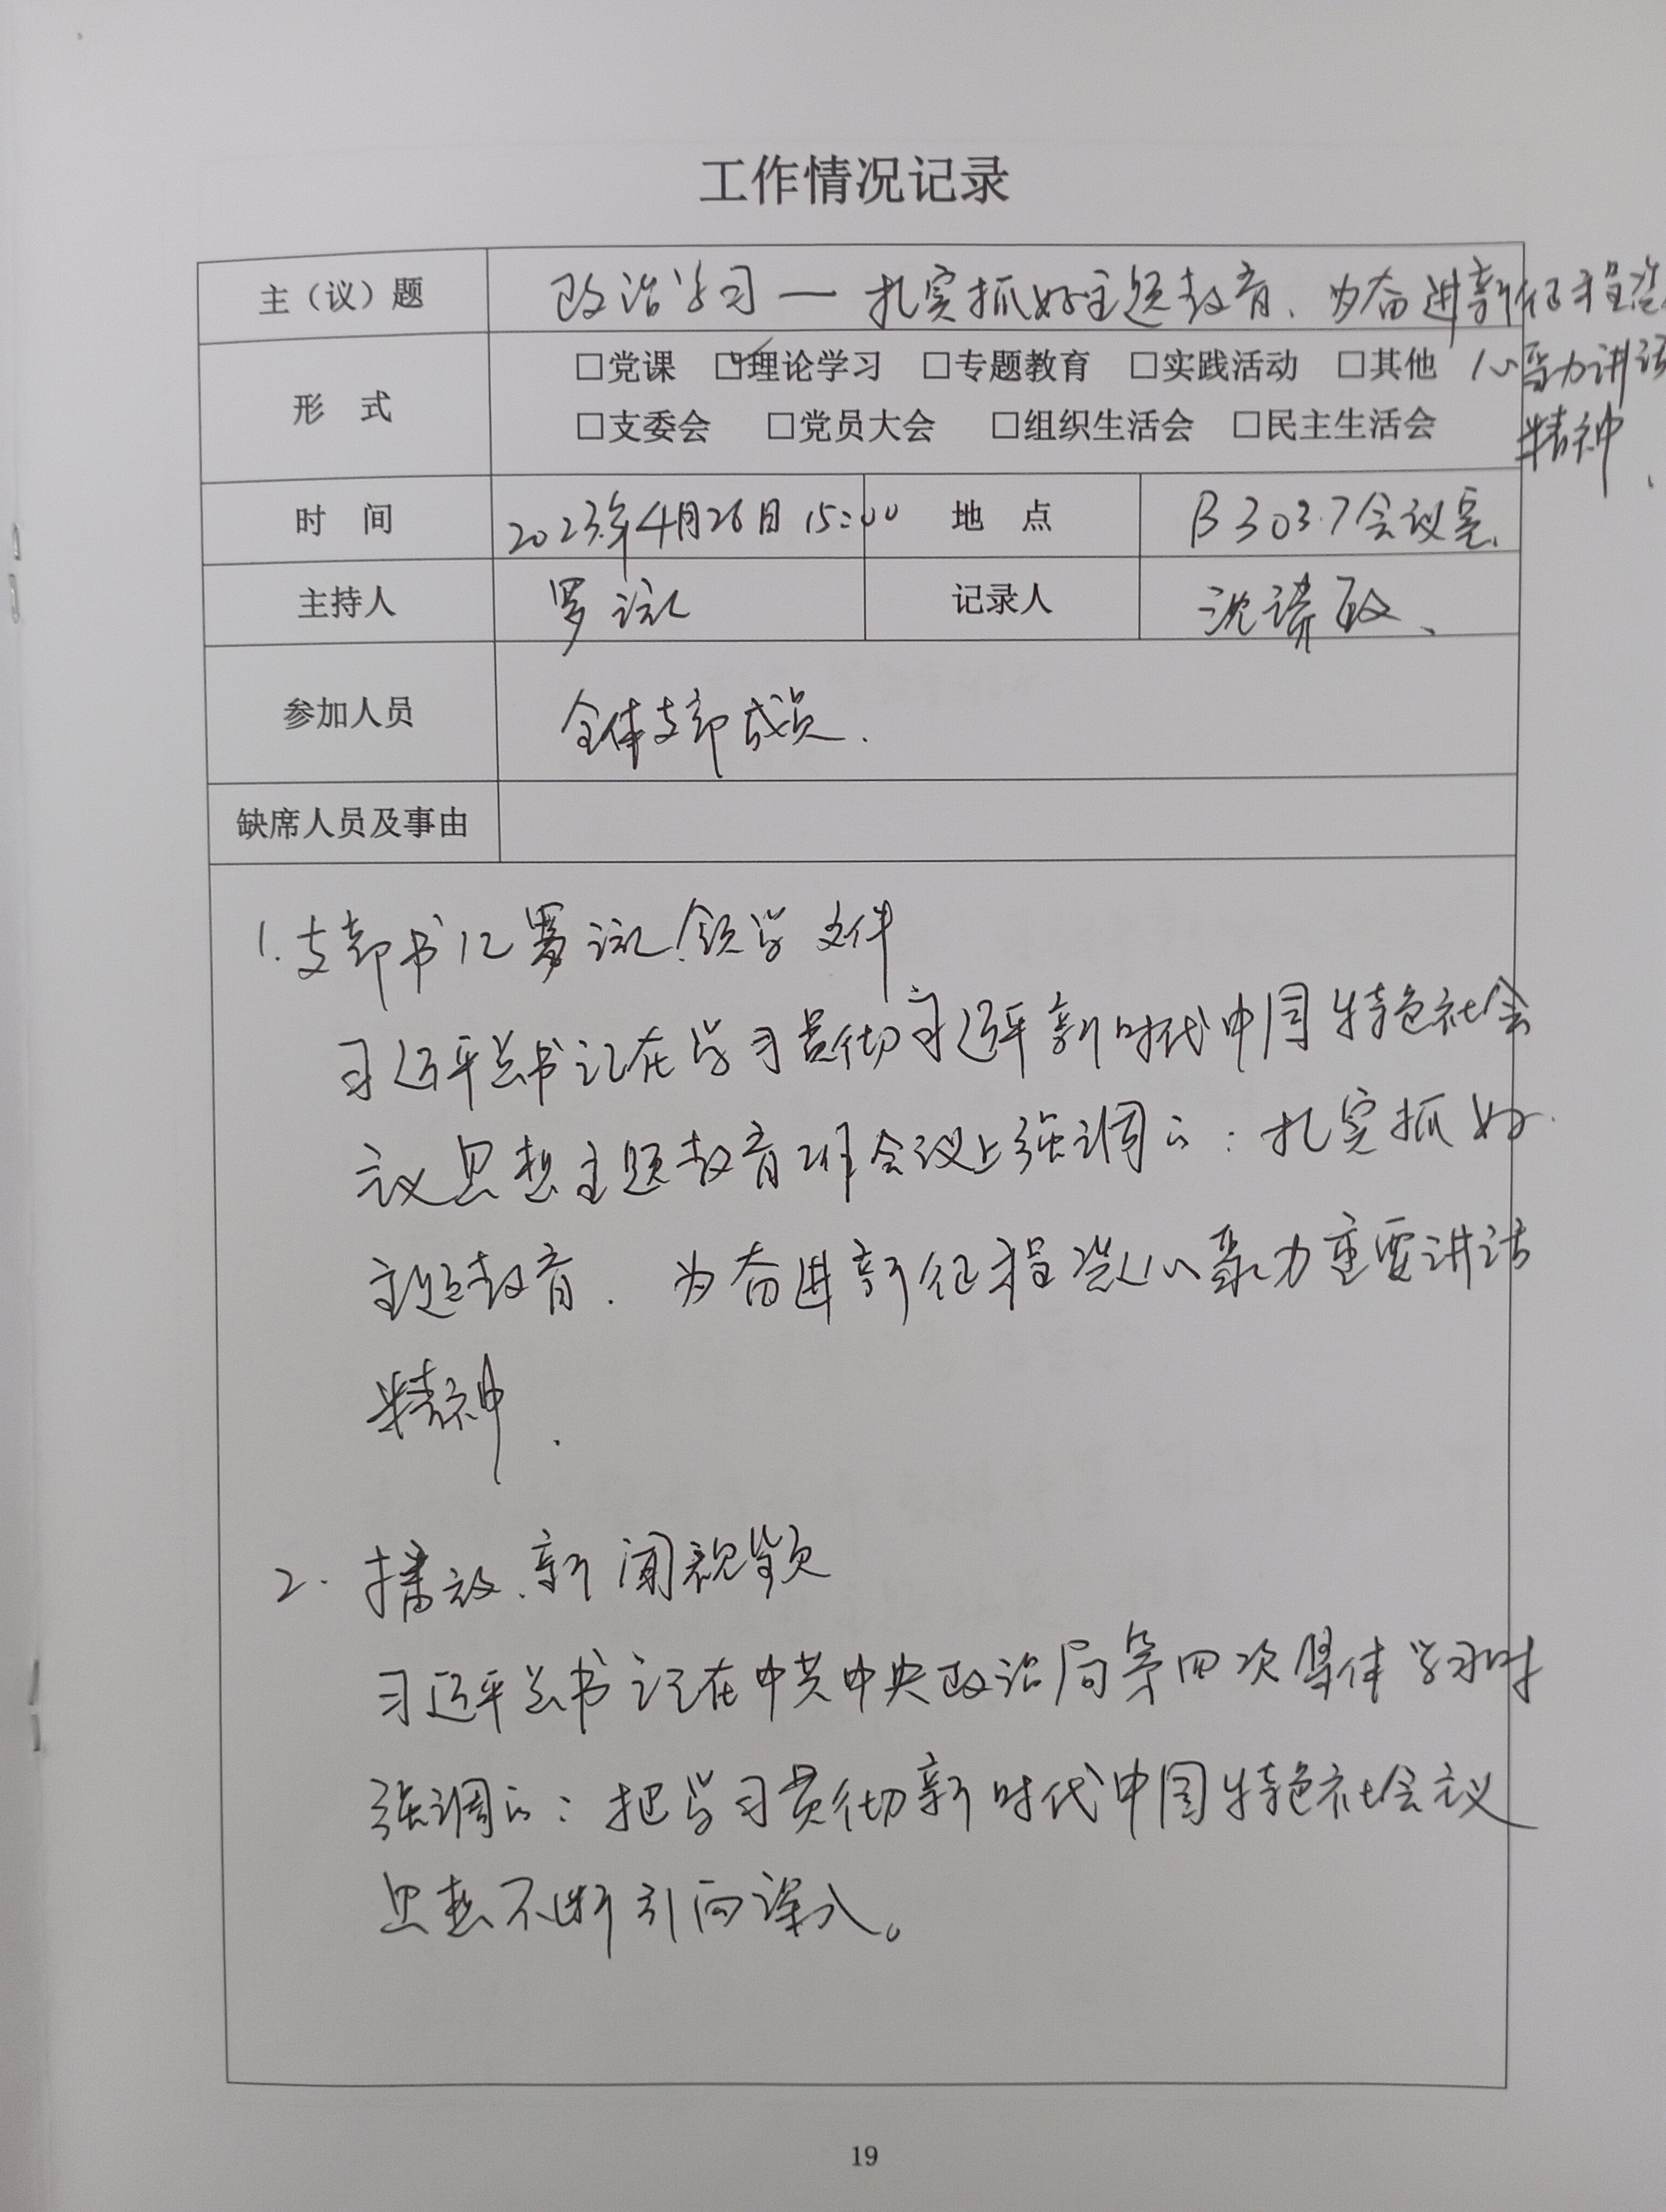 工作情况记录
主（议）题 政治学习 — 扎实抓好主题教育、为奋进新征程凝
心聚力讲话
精神、
形 式 □党课 ☑理论学习 □专题教育 □实践活动 □其他
□支委会 □党员大会 □组织生活会 □民主生活会
时 间 2023年4月26日 15:00 地 点 B303.7会议室、
主持人 罗 记录人 沈 敏、
参加人员 全体支部成员.
缺席人员及事由
1.支部书记罗 领学文件
习近平总书记在学习贯彻习近平新时代中国特色社会
主义思想主题教育 会议上强调的：扎实抓好
主题教育. 为奋进新征程凝心聚力重要讲话
精神.
2. 播放.新闻视频
习近平总书记在中共中央政治局第四次集体学习时
强调的：把学习贯彻新时代中国特色社会主义
思想不断引向深入。
19